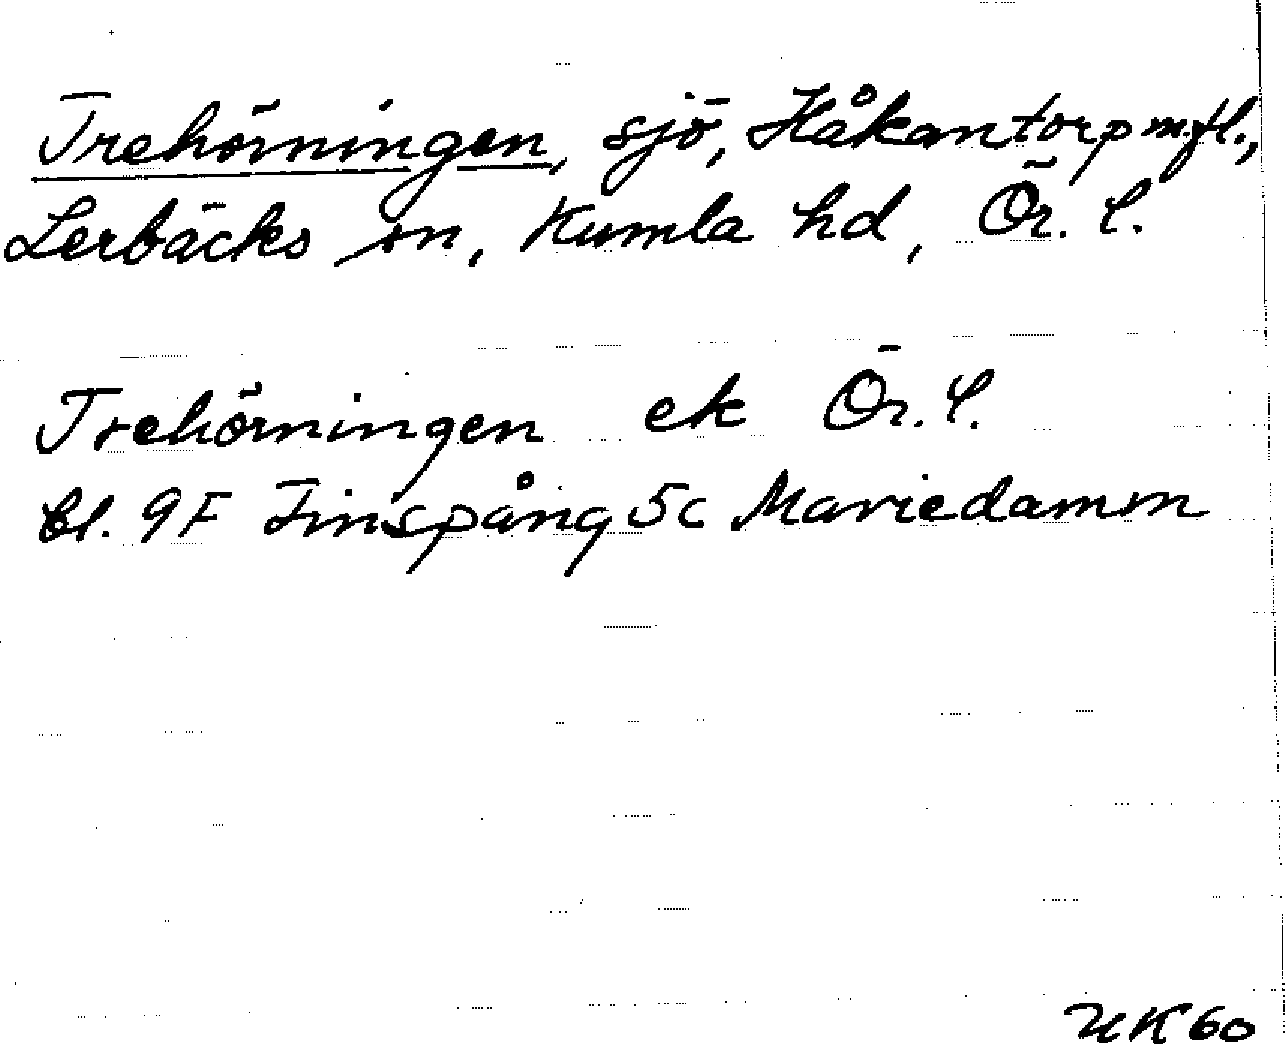 Trehörningen, sjö, Håkantorp m.fl.,
Lerbäcks sn, Kumla hd, Ör. l.
Trehörningen ek Ör. l.
bl. 9F Finspång 5c Mariedamm
UK 60